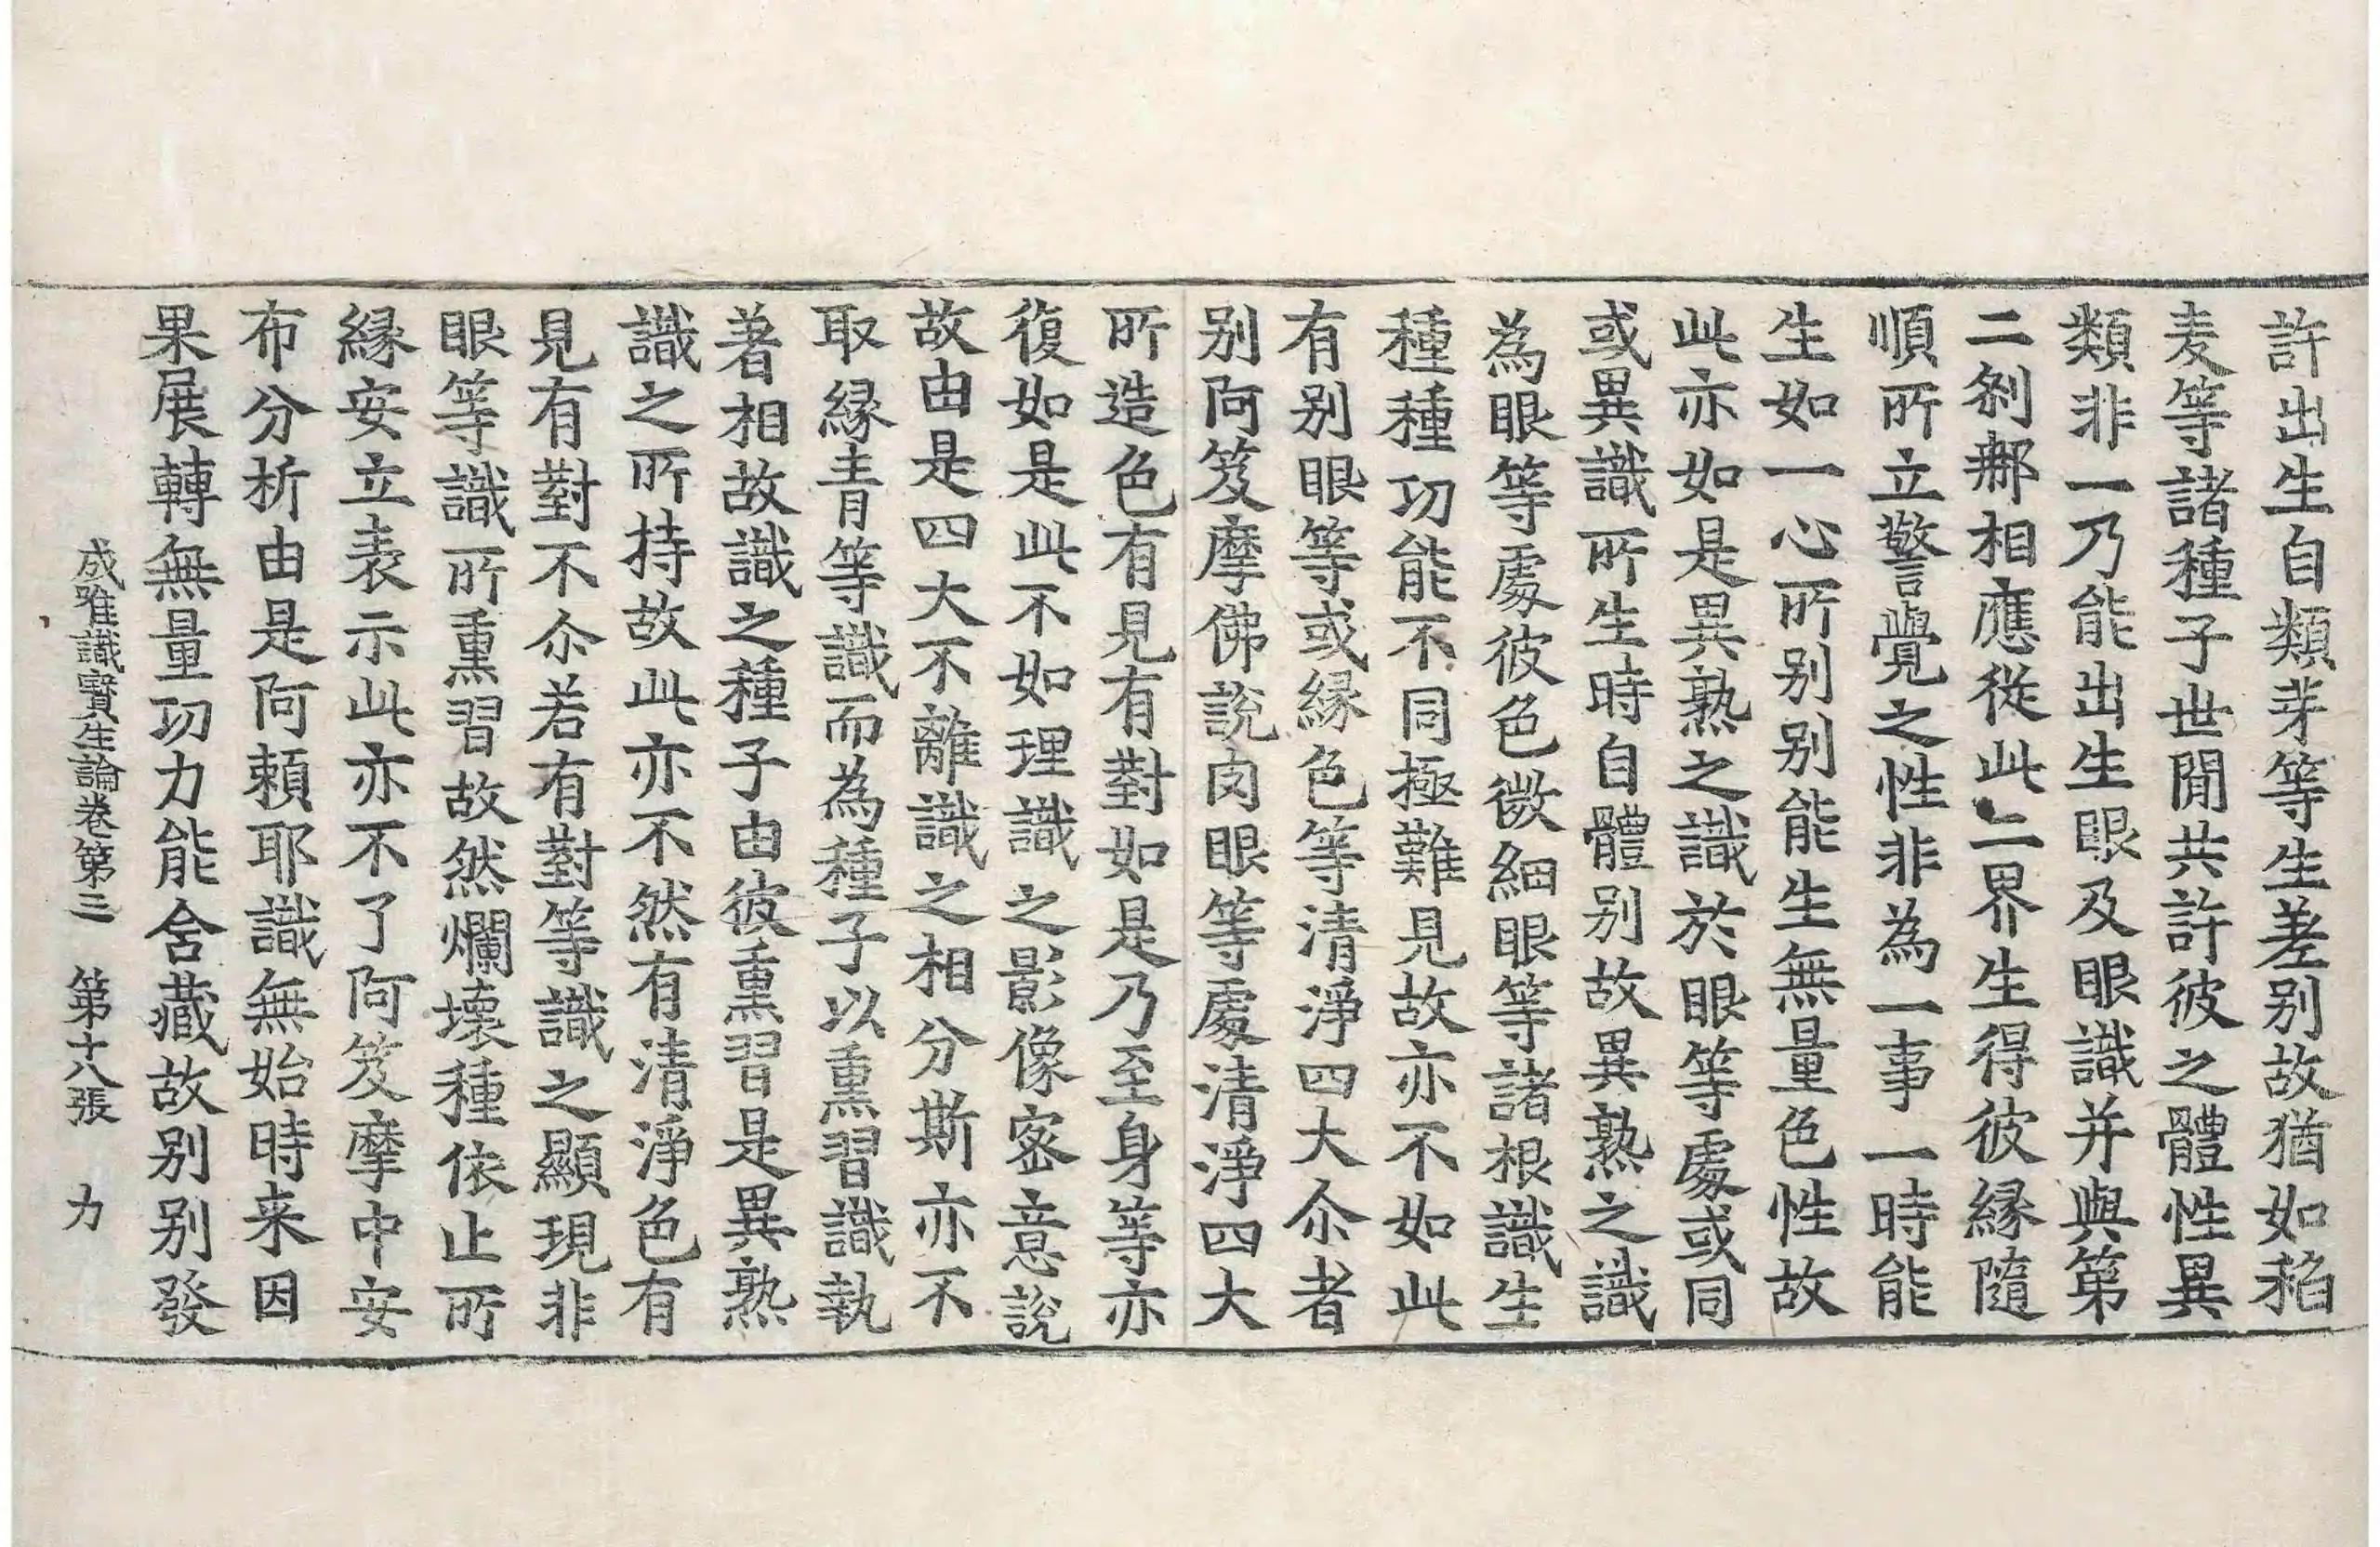 許出生自類芽等生差别故猶如稻
麦等諸種子世閒共許彼之體性異
類非一乃能出生眼及眼識并與第
二剎那相應從此二界生得彼緣隨
順所立警覺之性非為一事一時能
生如一心所别别能生無量色性故
此亦如是異熟之識於眼等處或同
或異識所生時自體别故異熟之識
為眼等處彼色微細眼等諸根識生
種種功能不同極難見故亦不如此
有别眼等或緣色等清淨四大尒者
别阿笈摩佛說肉眼等處清淨四大
所造色有見有對如是乃至身等亦
復如是此不如理識之影像密意說
故由是四大不離識之相分斯亦不
取緣青等識而為種子以熏習識執
著相故識之種子由彼熏習是異熟
識之所持故此亦不然有清淨色有
見有對不尒若有對等識之顯現非
眼等識所熏習故然爛壞種依止所
緣安立表示此亦不了阿笈摩中安
布分析由是阿賴耶識無始時来因
果展轉無量功力能含藏故别别發
成唯識寶生論卷第三 第十八張 力